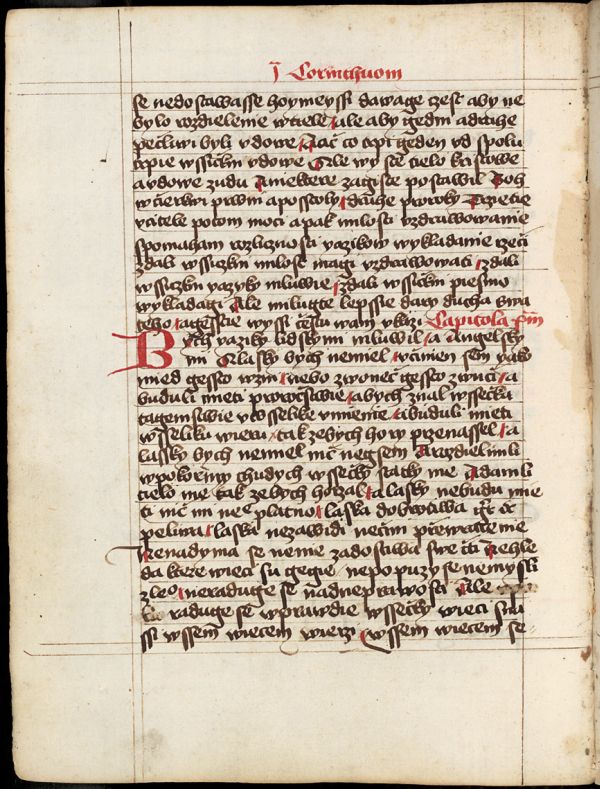 J Corinthuom
se nedostawasse hoymeyssi dawage czest aby ne
bylo rozdielenie w tiele ale aby gedni a druhe
peczliwi byli vdowe A ac co trpi geden vd spolu
trpie wssickni vdowe Ale wy ste tielo kristowe
a vdowe z vdu A niektere zagiste postawil Boh
w cierkwi prwni aposstoly druhe proroky Trzetie
vcitele potom moci a pak milosti vzdrawowanie
spomahani rozlicznosti yazikow wykladanie rzeci
zdali wssickni milost magi vzdrawowati zdali
wssickni yaziky mluwie zdali wssickni piesmo
wykladagi Ale milugte lepssie dary ducha swa
teho a gesscie wyssi cestu wam vkazi Capitola
Bych yaziky lidskymi mluwil a Angelsky
mi A lasky bych nemiel vcinien sem yako
mied gessto wzni nebo zwonec gessto zwuci a
buduli mieti proroctwie a bych znal wssecku
tagemstwie y wsselike vmienie A buduli mieti
wsseliku wieru tak ze bych hory przenassel a
lasky bych nemiel nic negsem A rozdielimli
w pokrmy chudych wssecky statky me A damli
tielo me tak ze bych horzal a lasky nebudu mie
ti nic mi nenie platno laska dobrotiwa iest
peliwa laska nezawidi necini przewracenie
nenadyma se nenie zadostiwa swe cti Nehle
da ktere wieci su gegie nepopuzy se nemysli
zleho neraduge se nad neprawosti Ale
raduge se w prawdie wssecky wieci snu
ssi wssem wiecem wierzi wssem wiecem se